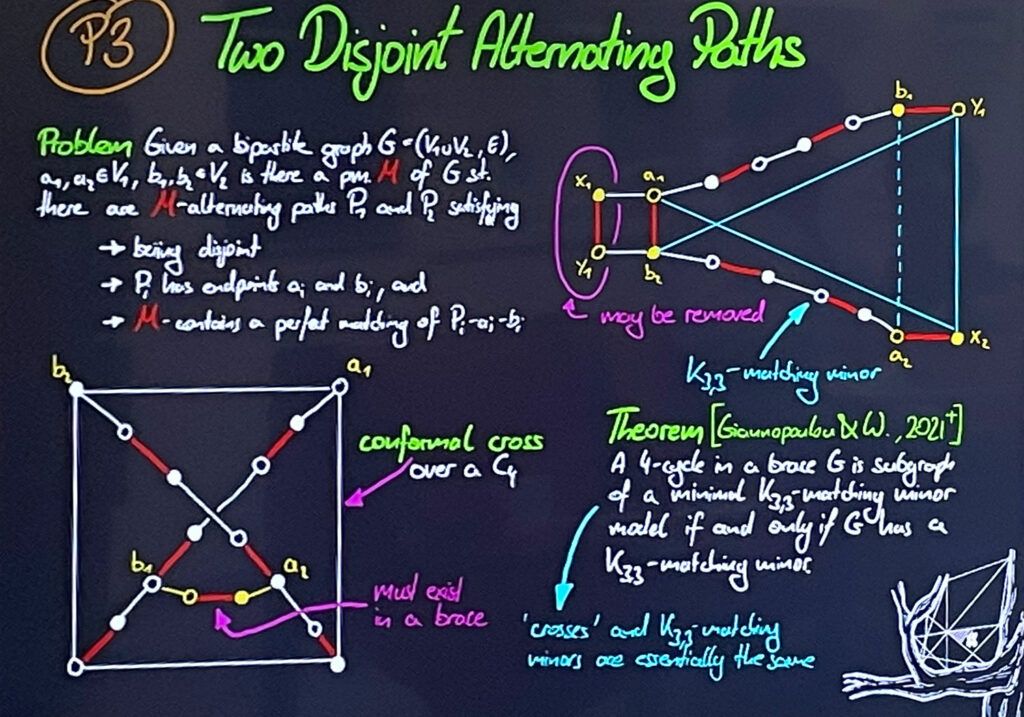 P3
Two Disjoint Alternating Paths
Problem Given a bipartite graph G=(V₁∪V₂,E),
a₁,a₂∈V₁, b₁,b₂∈V₂ is there a p.m. M of G s.t.
there are M-alternating paths P₁ and P₂ satisfying
→ beiing disjoint
→ Pᵢ has endpoints aᵢ and bᵢ, and
→ M-contains a perfect matching of Pᵢ-aᵢ-bᵢ
b₁
y₁
x₁
a₁
y₁
b₂
may be removed
a₂
x₂
K₃,₃-matching minor
b₂
a₁
conformal cross
over a C₄
b₁
a₂
must exist
in a brace
Theorem [Giannopoulou & W., 2021⁺]
A 4-cycle in a brace G is subgraph
of a minimal K₃,₃-matching minor
model if and only if G has a
K₃,₃-matching minor.
'crosses' and K₃,₃-matching
minors are essentially the same